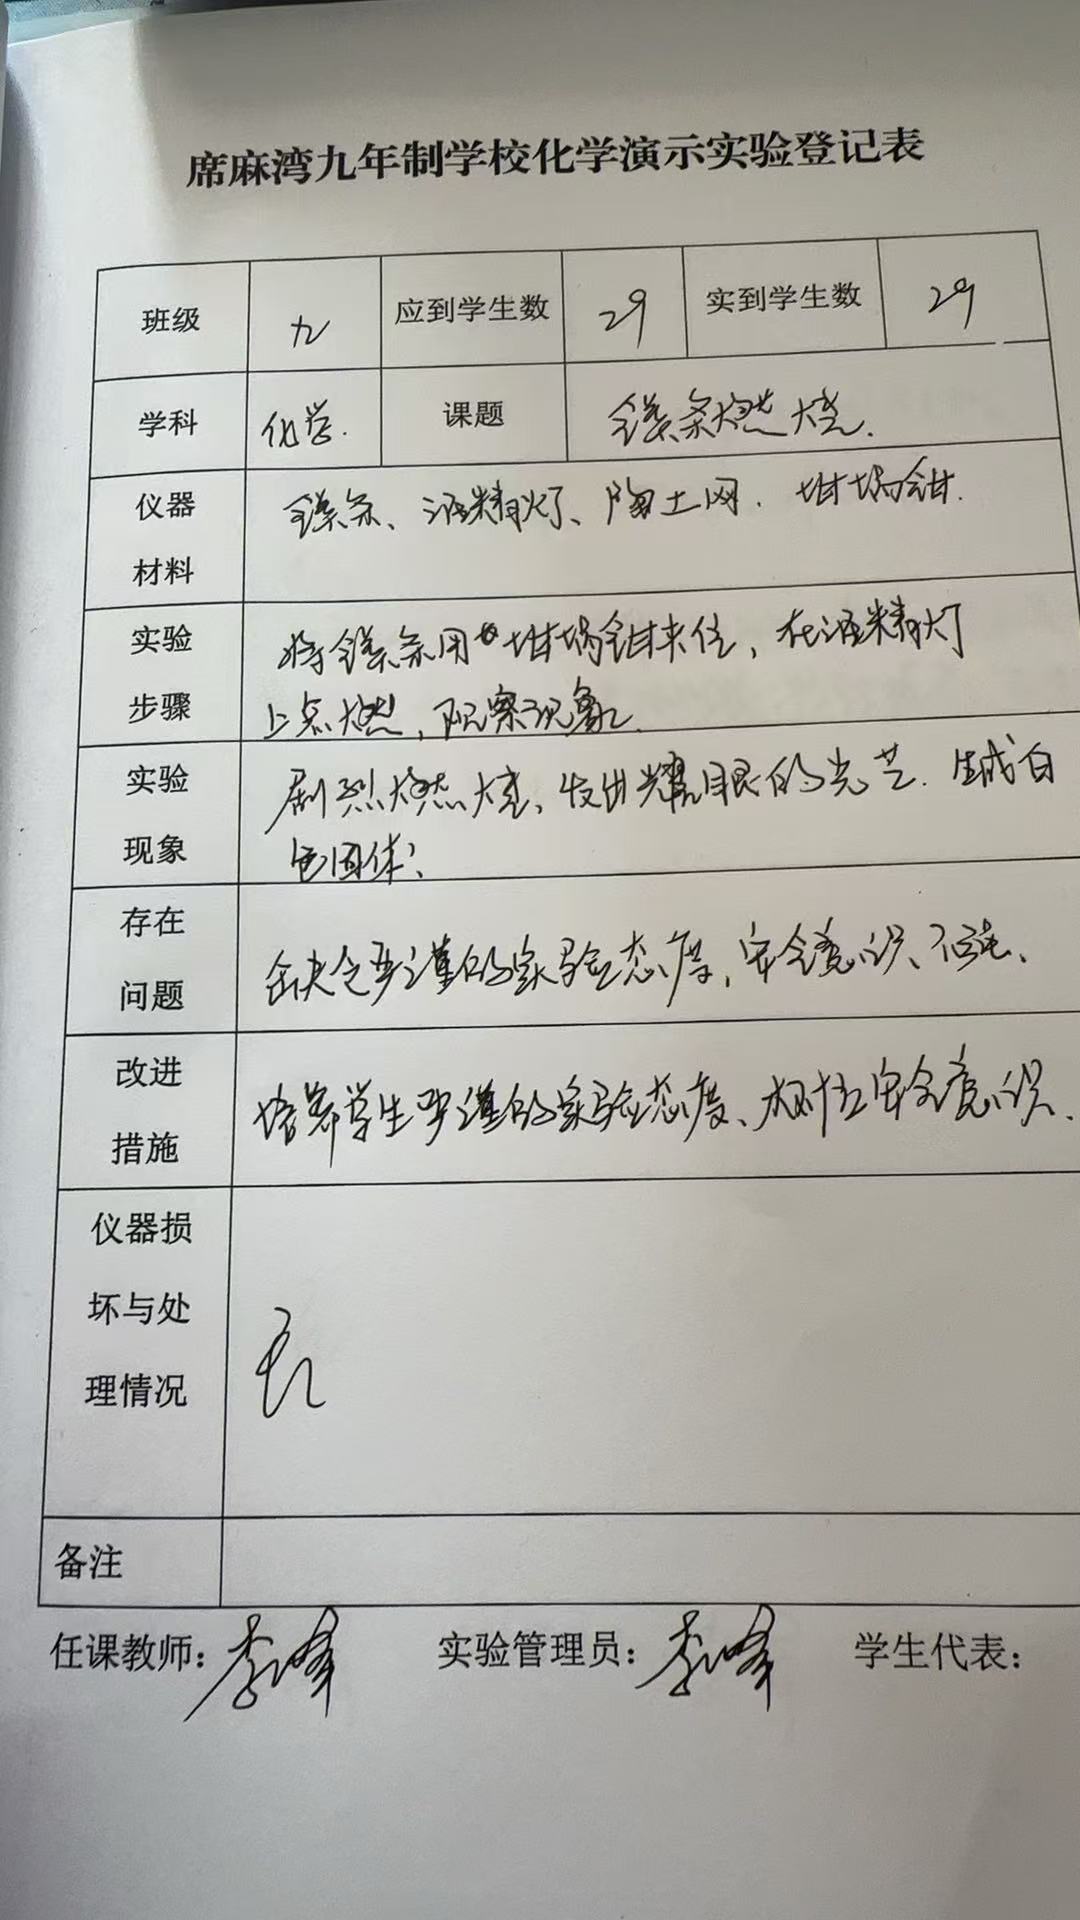 席麻湾九年制学校化学演示实验登记表
班级 九 应到学生数 29 实到学生数 29
学科 化学. 课题 镁条燃烧.
仪器材料 镁条、酒精灯、陶土网. 坩埚钳.
实验步骤 将镁条用坩埚钳夹住，在酒精灯
上点燃，观察现象.
实验现象 剧烈燃烧、发出耀眼的光芒. 生成白
色固体;
存在问题 缺乏严谨的实验态度，安全意识、不强、
改进措施 培养学生严谨的实验态度、树立安全意识.
仪器损坏与处理情况 无
备注
任课教师: 李峰 实验管理员: 李峰 学生代表: